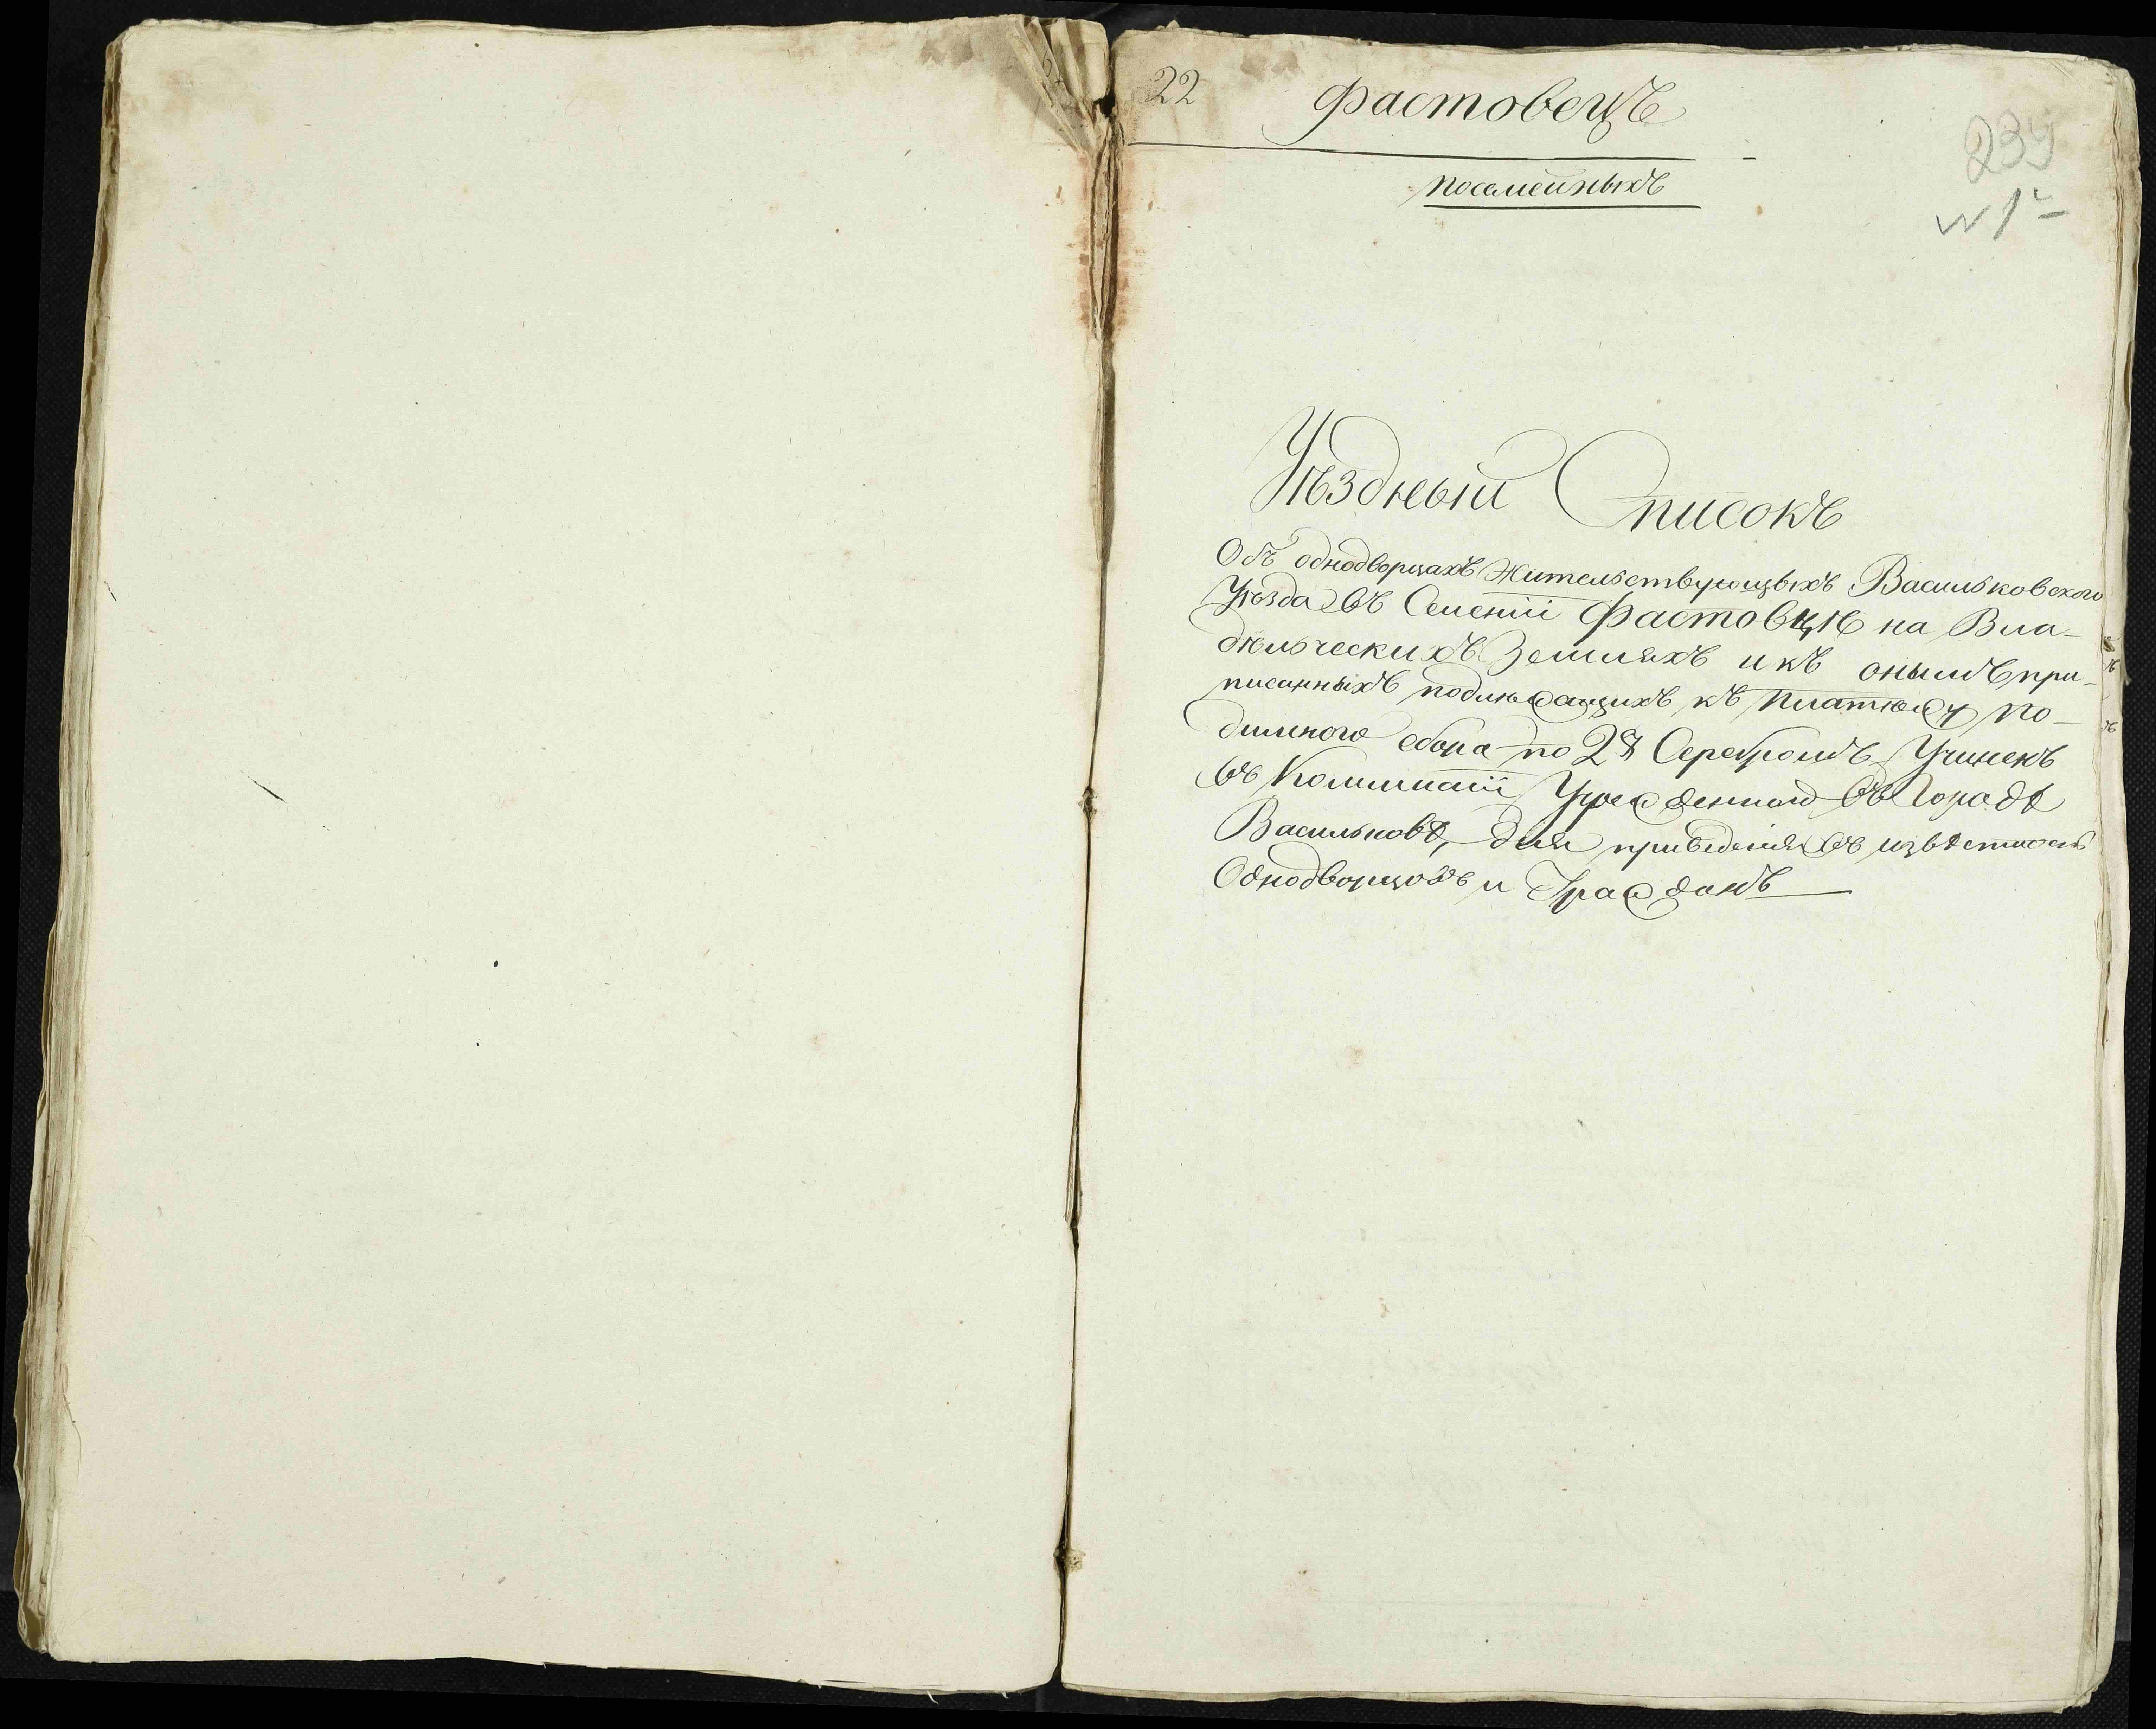 22
Фастовецъ
239
посемейныхъ
№ 1й
Уѣздный Списокъ
Объ однодворцахъ Жительствующыхъ Васильковского
Уѣзда въ Селеніи Фастовцѣ на Вла-
дѣльческихъ Земляхъ и къ онымъ при-
писанныхъ подлежащихъ къ Платежу по-
дымного сбора по 2 Серебромъ Учинекъ
въ Коммисіи Учрежденной въ Городѣ
Васильковѣ, для приведенія въ извѣстность
Однодворцовъ и Гражданъ